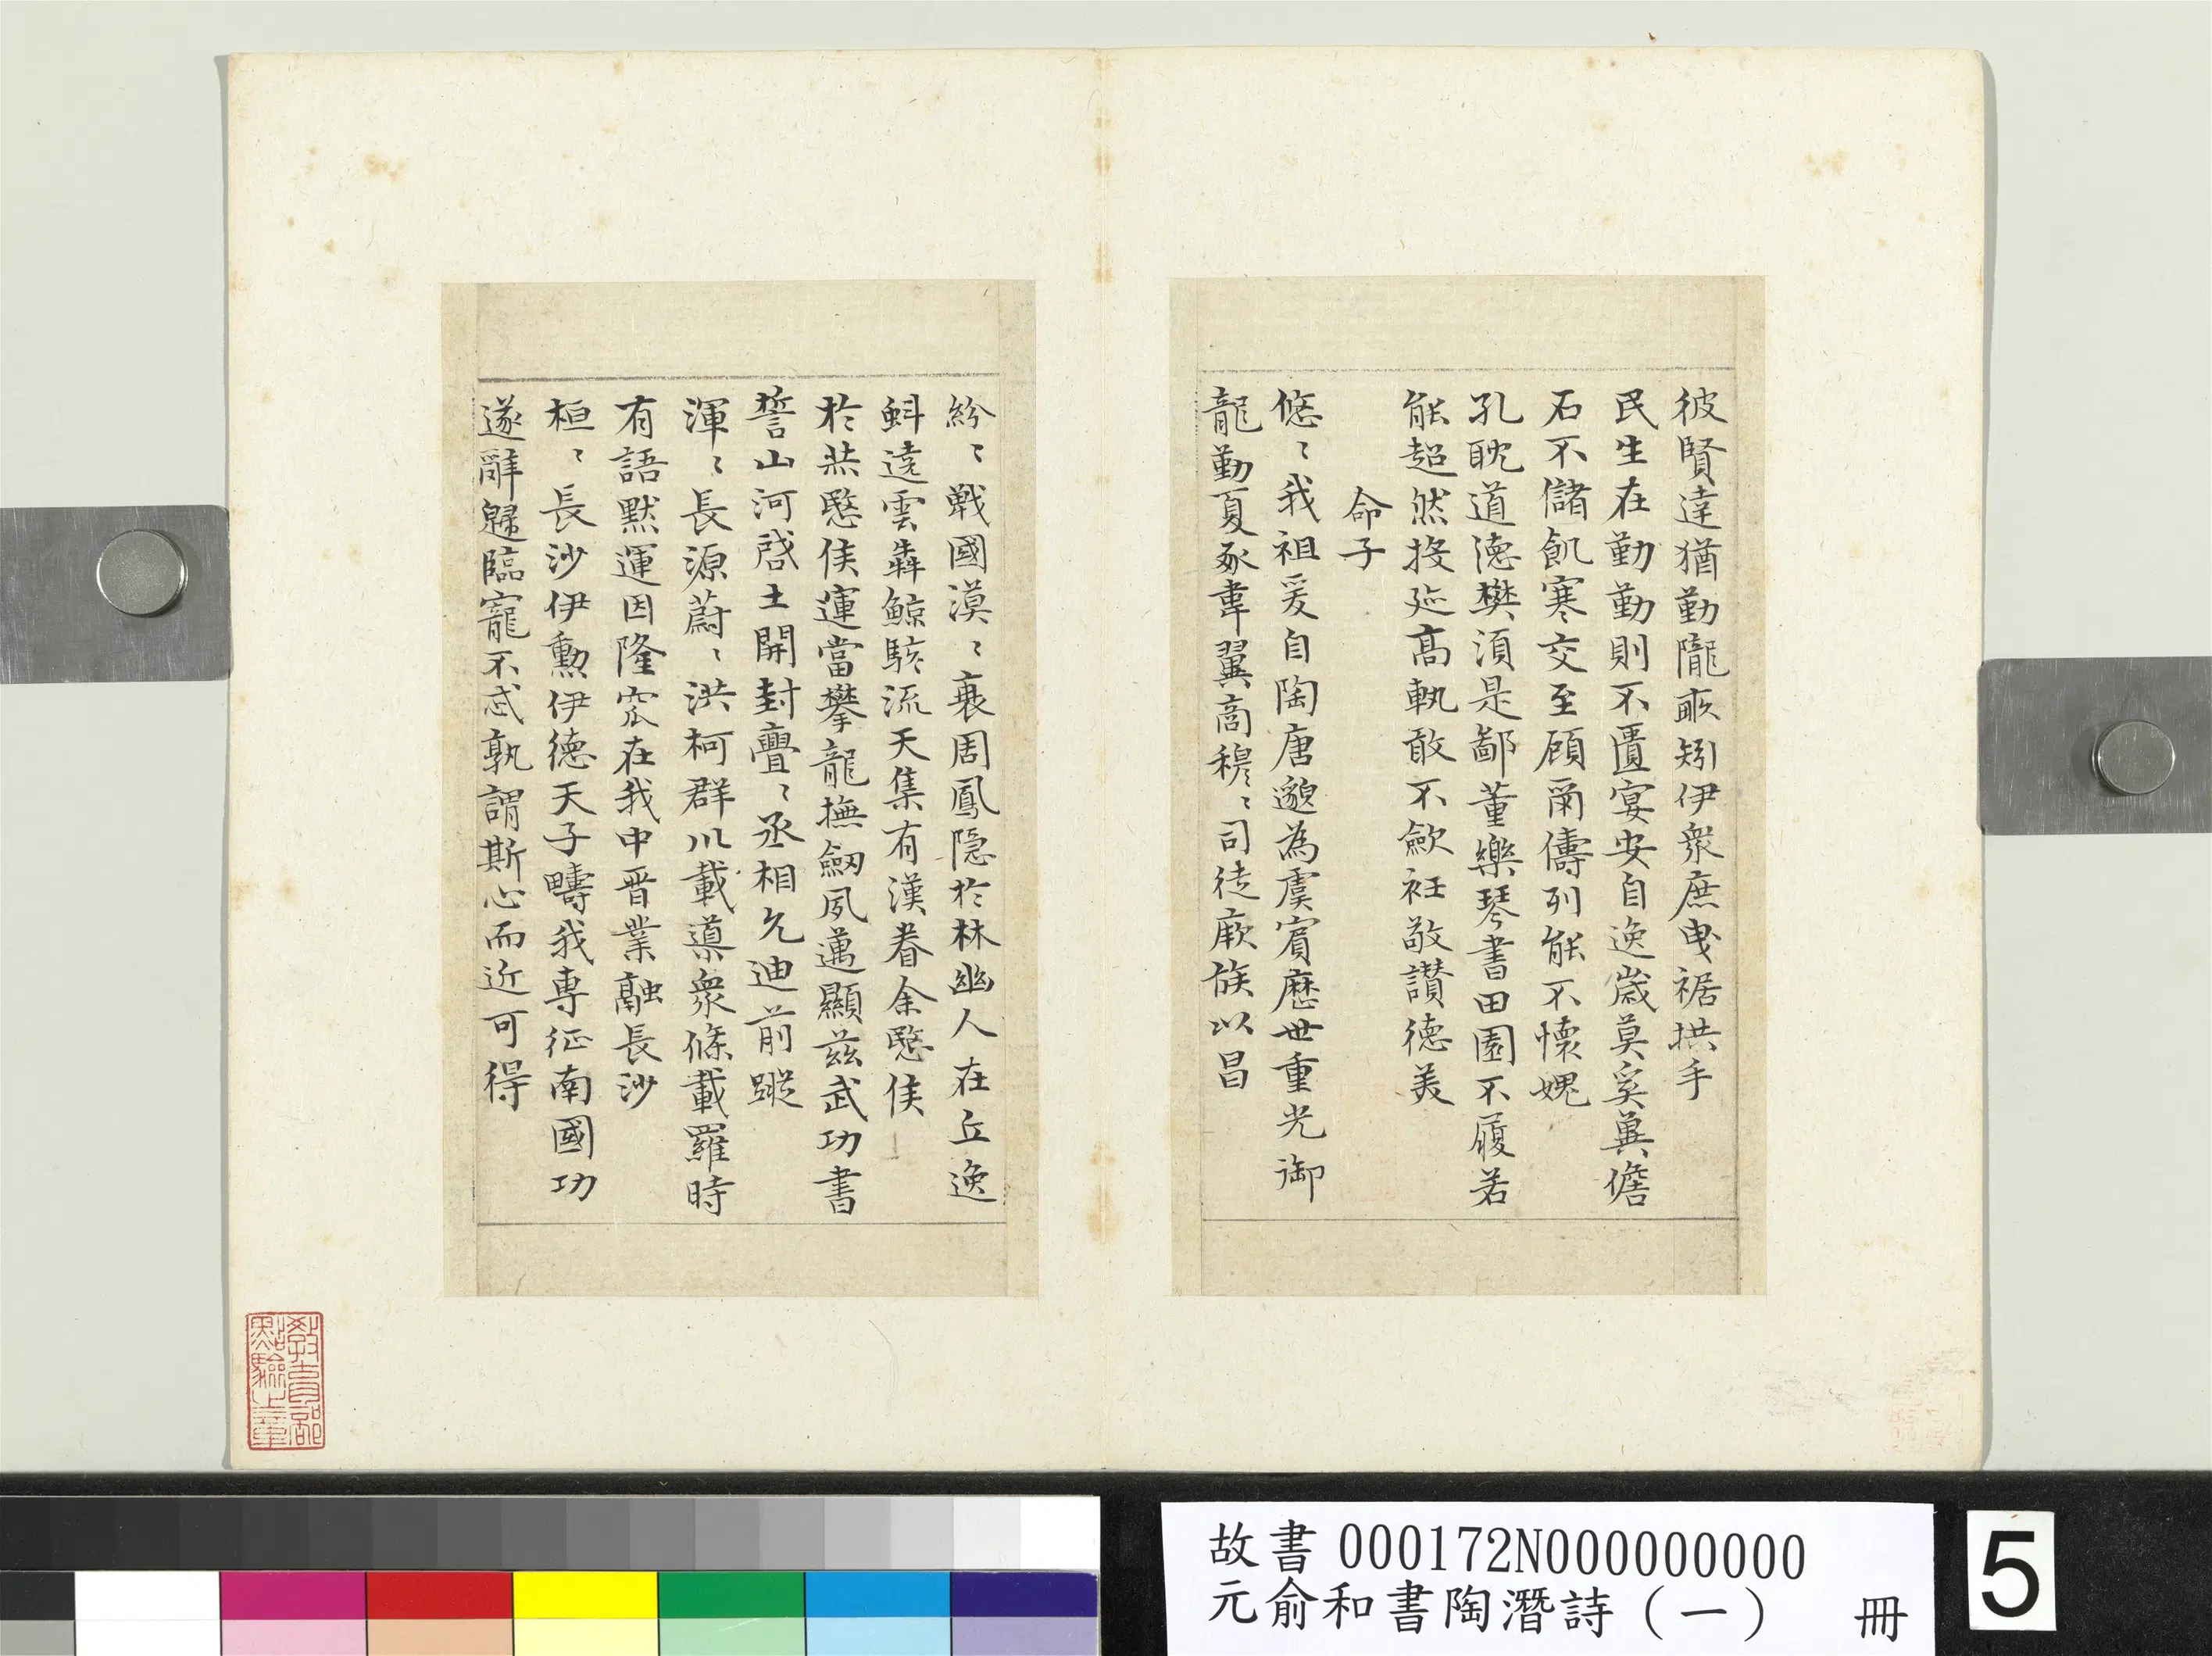 彼賢達猶勤隴畝矧伊衆庶曳裾拱手
民生在勤勤則不匱宴安自逸歲莫奚冀儋
石不儲飢寒交至顧爾儔列能不懷媿
孔耽道德樊須是鄙董樂琴書田園不履若
能超然投迹高軌敢不歛衽敬讃德美
命子
悠〻我祖爰自陶唐邈為虞賔歷世重光御
龍勤夏豕韋翼商穆〻司徒厥族以昌
紛〻戰國漠〻衰周鳳隱於林幽人在丘逸
虯遶雲犇鯨駭流天集有漢眷余愍侯
於赫愍侯運當攀龍撫劒夙邁顯茲武功書
誓山河啓土開封亹〻丞相允迪前蹤
渾〻長源蔚〻洪柯群川載導衆條載羅時
有語默運因隆窊在我中晉業融長沙
桓〻長沙伊勳伊德天子疇我專征南國功
遂辭歸臨寵不忒孰謂斯心而近可得
教育部點驗之章
故書 000172N000000000
元俞和書陶潛詩（一） 冊
5